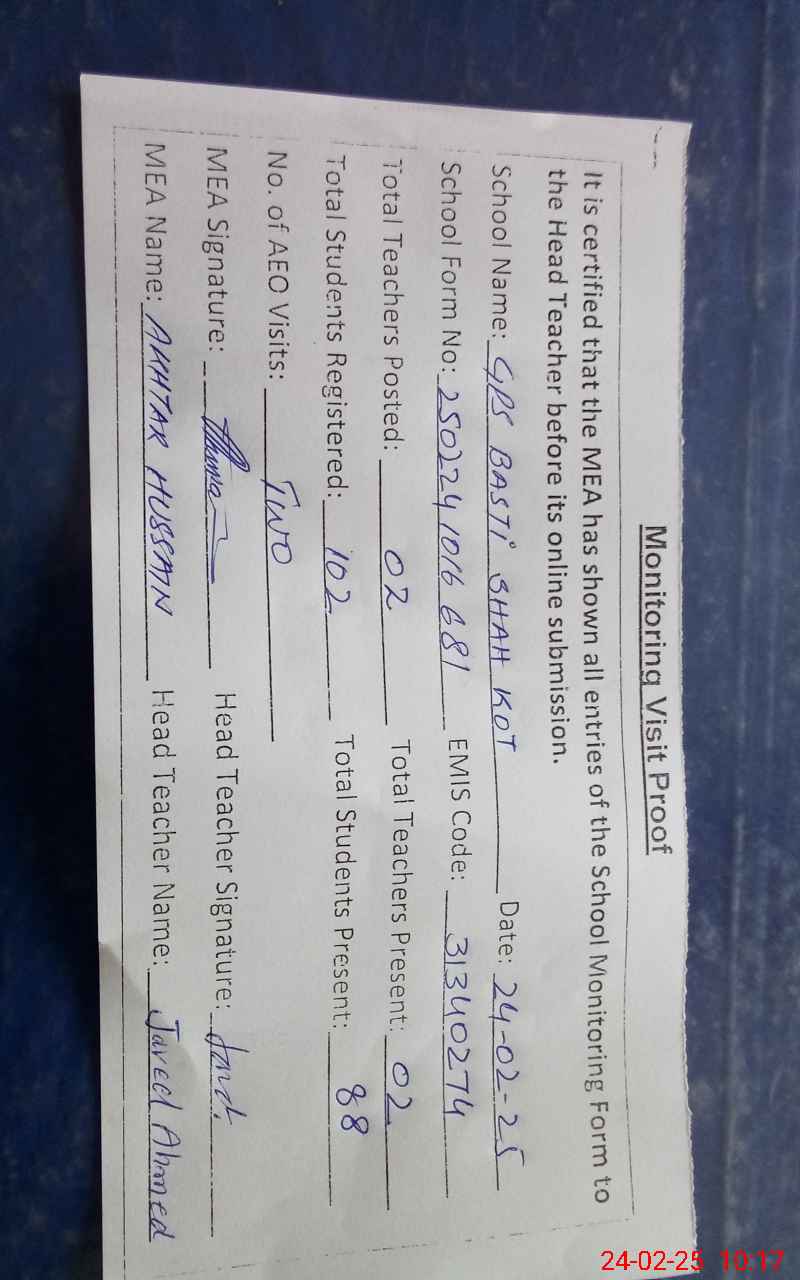 Monitoring Visit Proof
It is certified that the MEA has shown all entries of the School Monitoring Form to
the Head Teacher before its online submission.
School Name: GPS BASTI SHAH KOT Date: 24-02-25
School Form No: 250224 1016 681 EMIS Code: 31340274
Total Teachers Posted: 02 Total Teachers Present: 02
Total Students Registered: 102 Total Students Present: 88
No. of AEO Visits: Two
MEA Signature: Head Teacher Signature:
MEA Name: AKHTAR HUSSAIN Head Teacher Name: Javed Ahmed
24-02-25 10:17